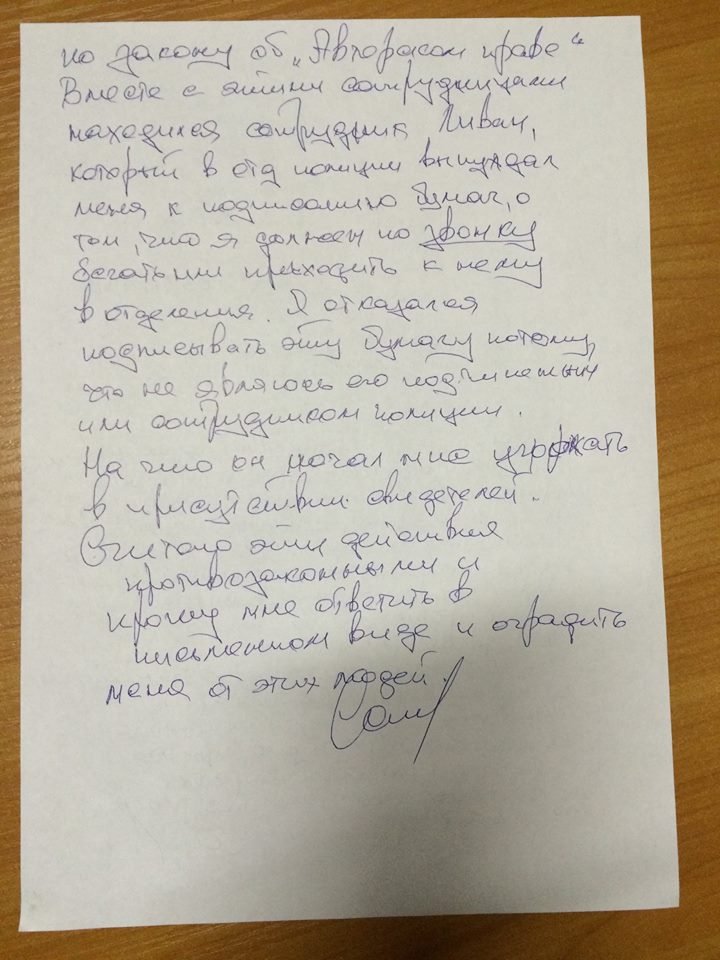 по закону об „Авторском праве“
Вместе с этими сотрудницами
находился сотрудник Ливан,
который в отд полиции вынуждал
меня к подписанию бумаг, о
том, что я должен по звонку
бегать или приходить к нему
в отделения. Я отказался
подписывать эту бумагу потому,
что не являюсь его подчиненным
или сотрудником полиции.
На что он начал мне угрожать
в присутствии свидетелей.
Считаю эти действия
противозаконными и
прошу мне ответить в
письменном виде и оградить
меня от этих людей.